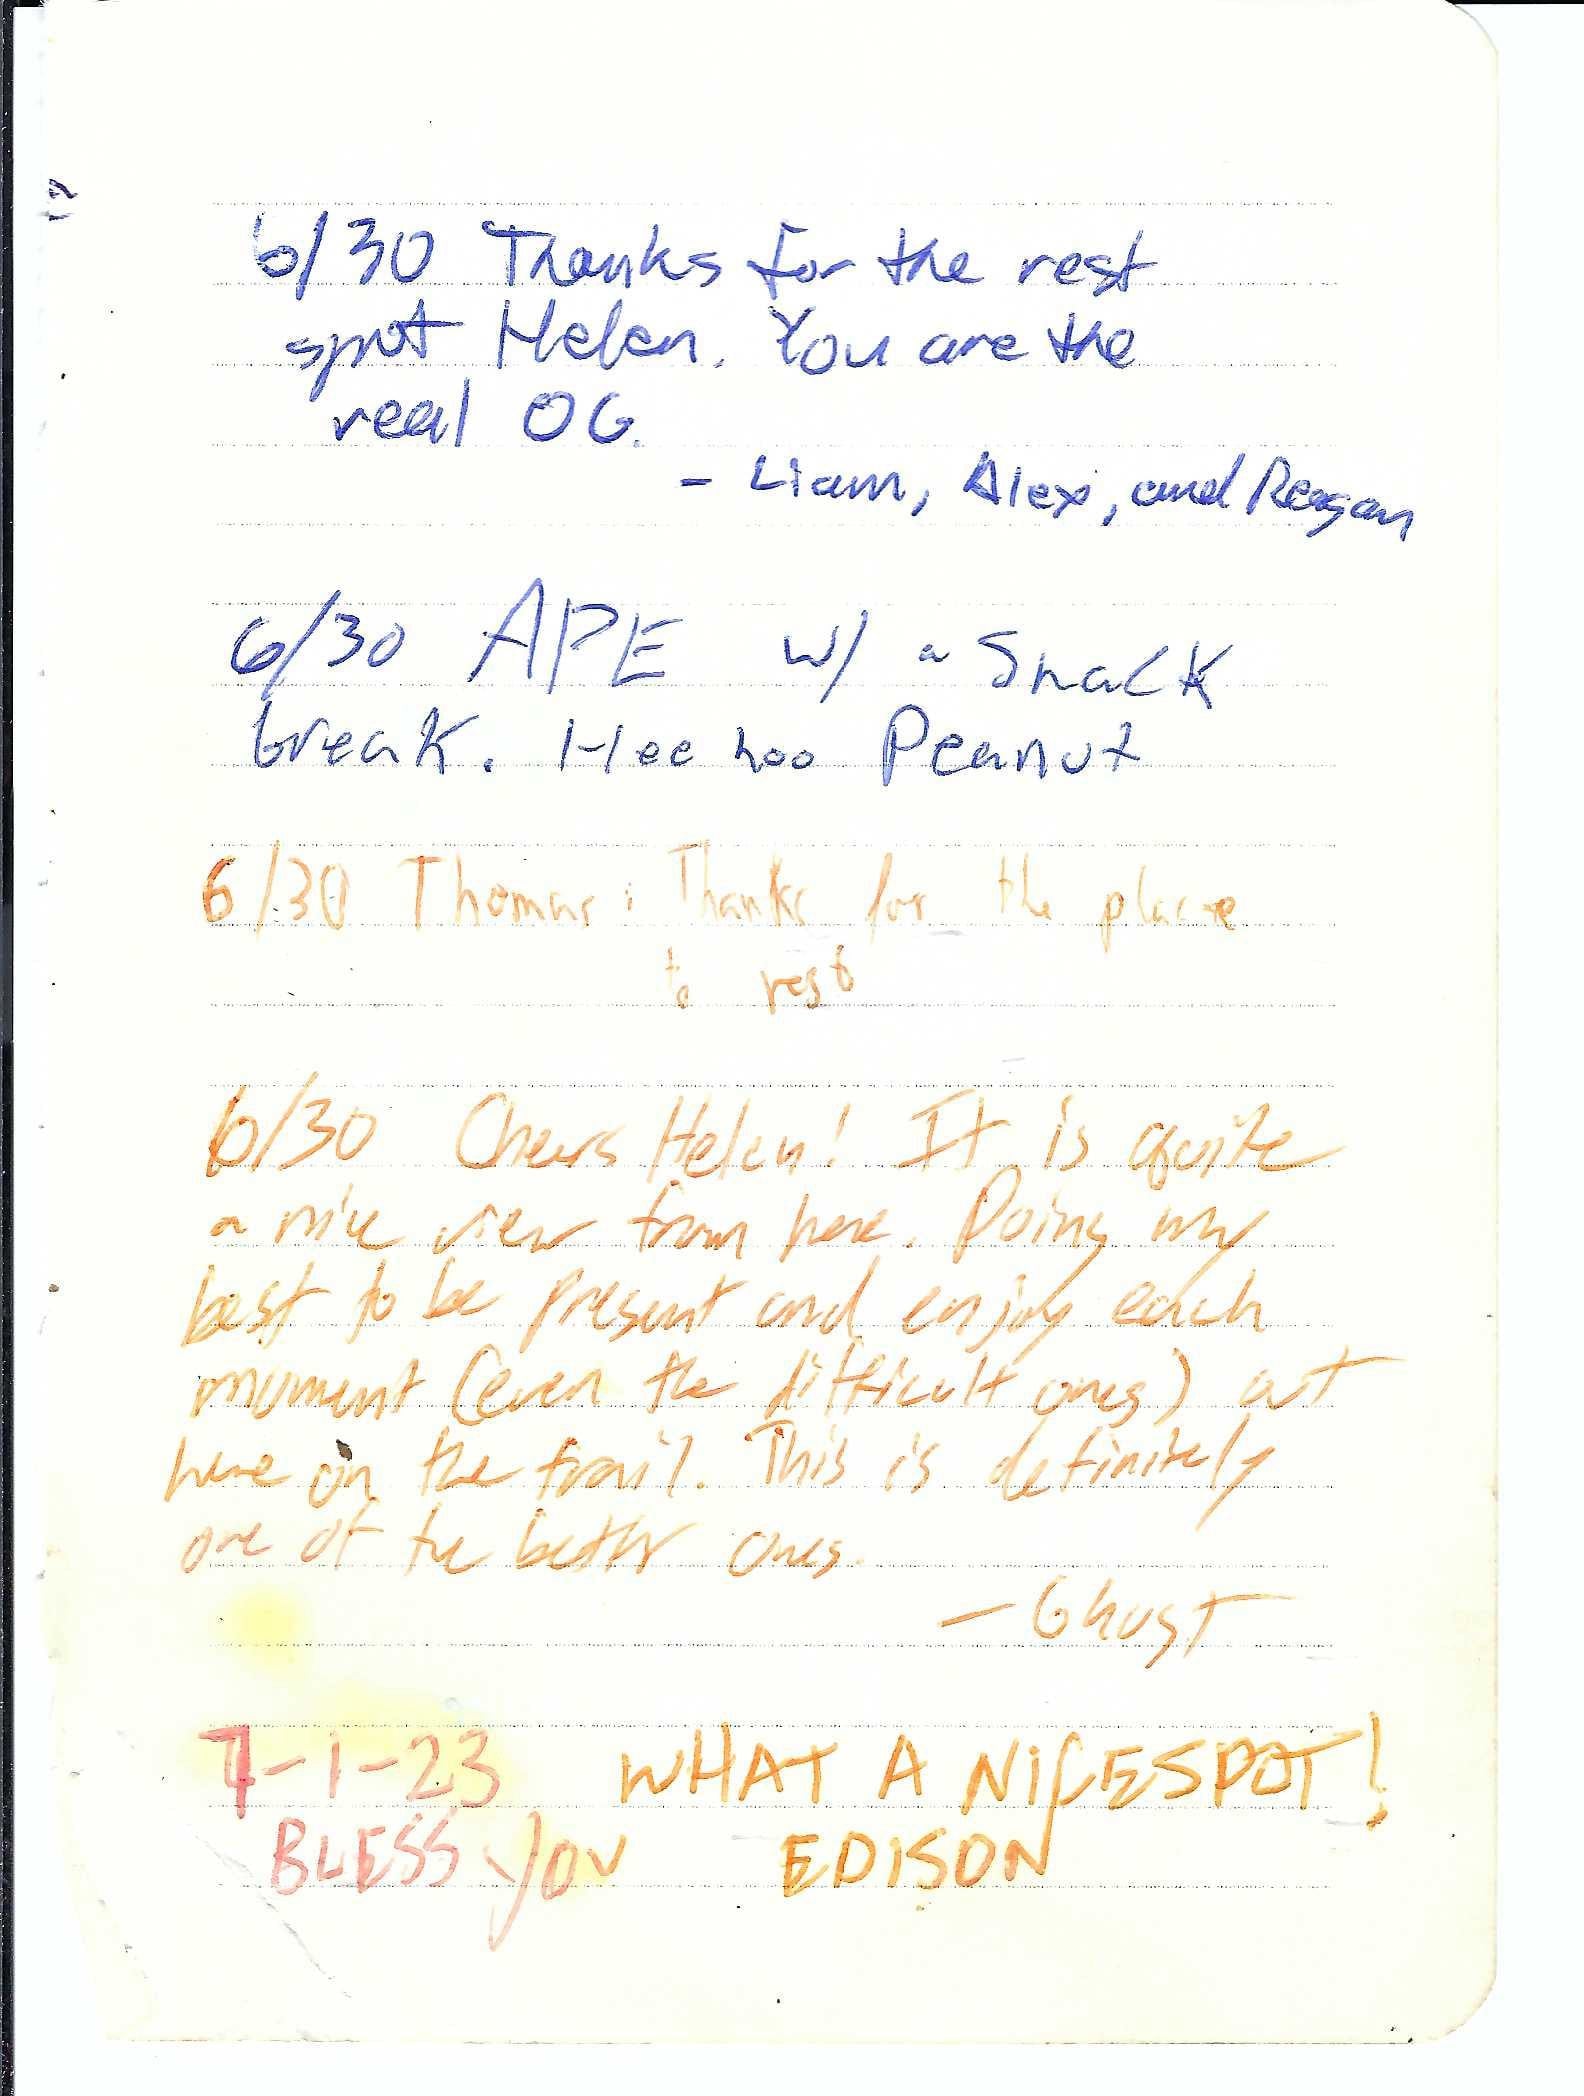 6/30 Thanks for the rest
spot Helen. You are the
real OG.
- Liam, Alex, and Reagan
6/30 APE w/ a Snack
break. Hee hoo Peanut
6/30 Thomas: Thanks for the place
to rest
6/30 Cheers Helen! It is quite
a nice view from here. Doing my
best to be present and enjoy each
moment (even the difficult ones) out
here on the trail. This is definitely
one of the better ones.
- Ghost
7-1-23 WHAT A NICE SPOT!
BLESS YOU EDISON